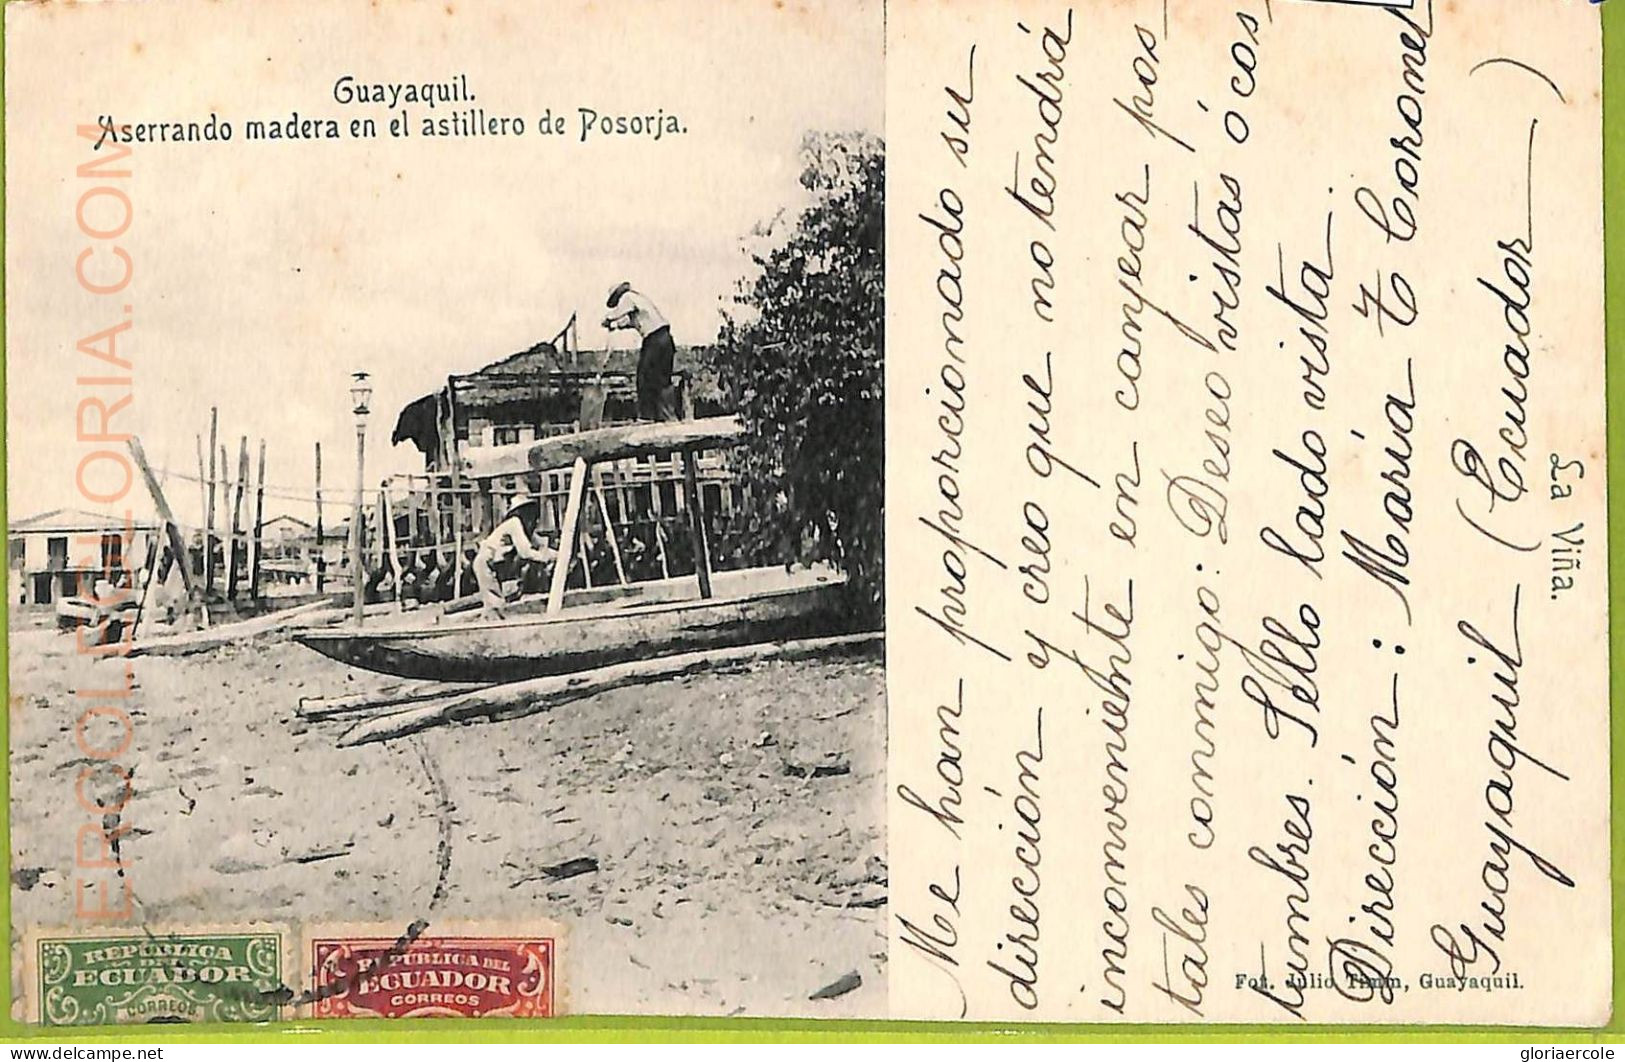 Guayaquil.
Aserrando madera en el astillero de Posorja.
ERCOLE-GLORIA.COM
REPUBLICA
DEL
ECUADOR
CORREOS
REPUBLICA DEL
ECUADOR
CORREOS
Me han proporcionado su
dirección y creo que no tendrá
inconveniente en canyear pos_
tales conmigo: Deseo vistas ó cos_
tumbres. Sello lado vista.
Dirección: María T Coronel
Guayaquil_(Ecuador_)
La Viña.
Fot. Julio Timm, Guayaquil.
delcampe.net
gloriaercole